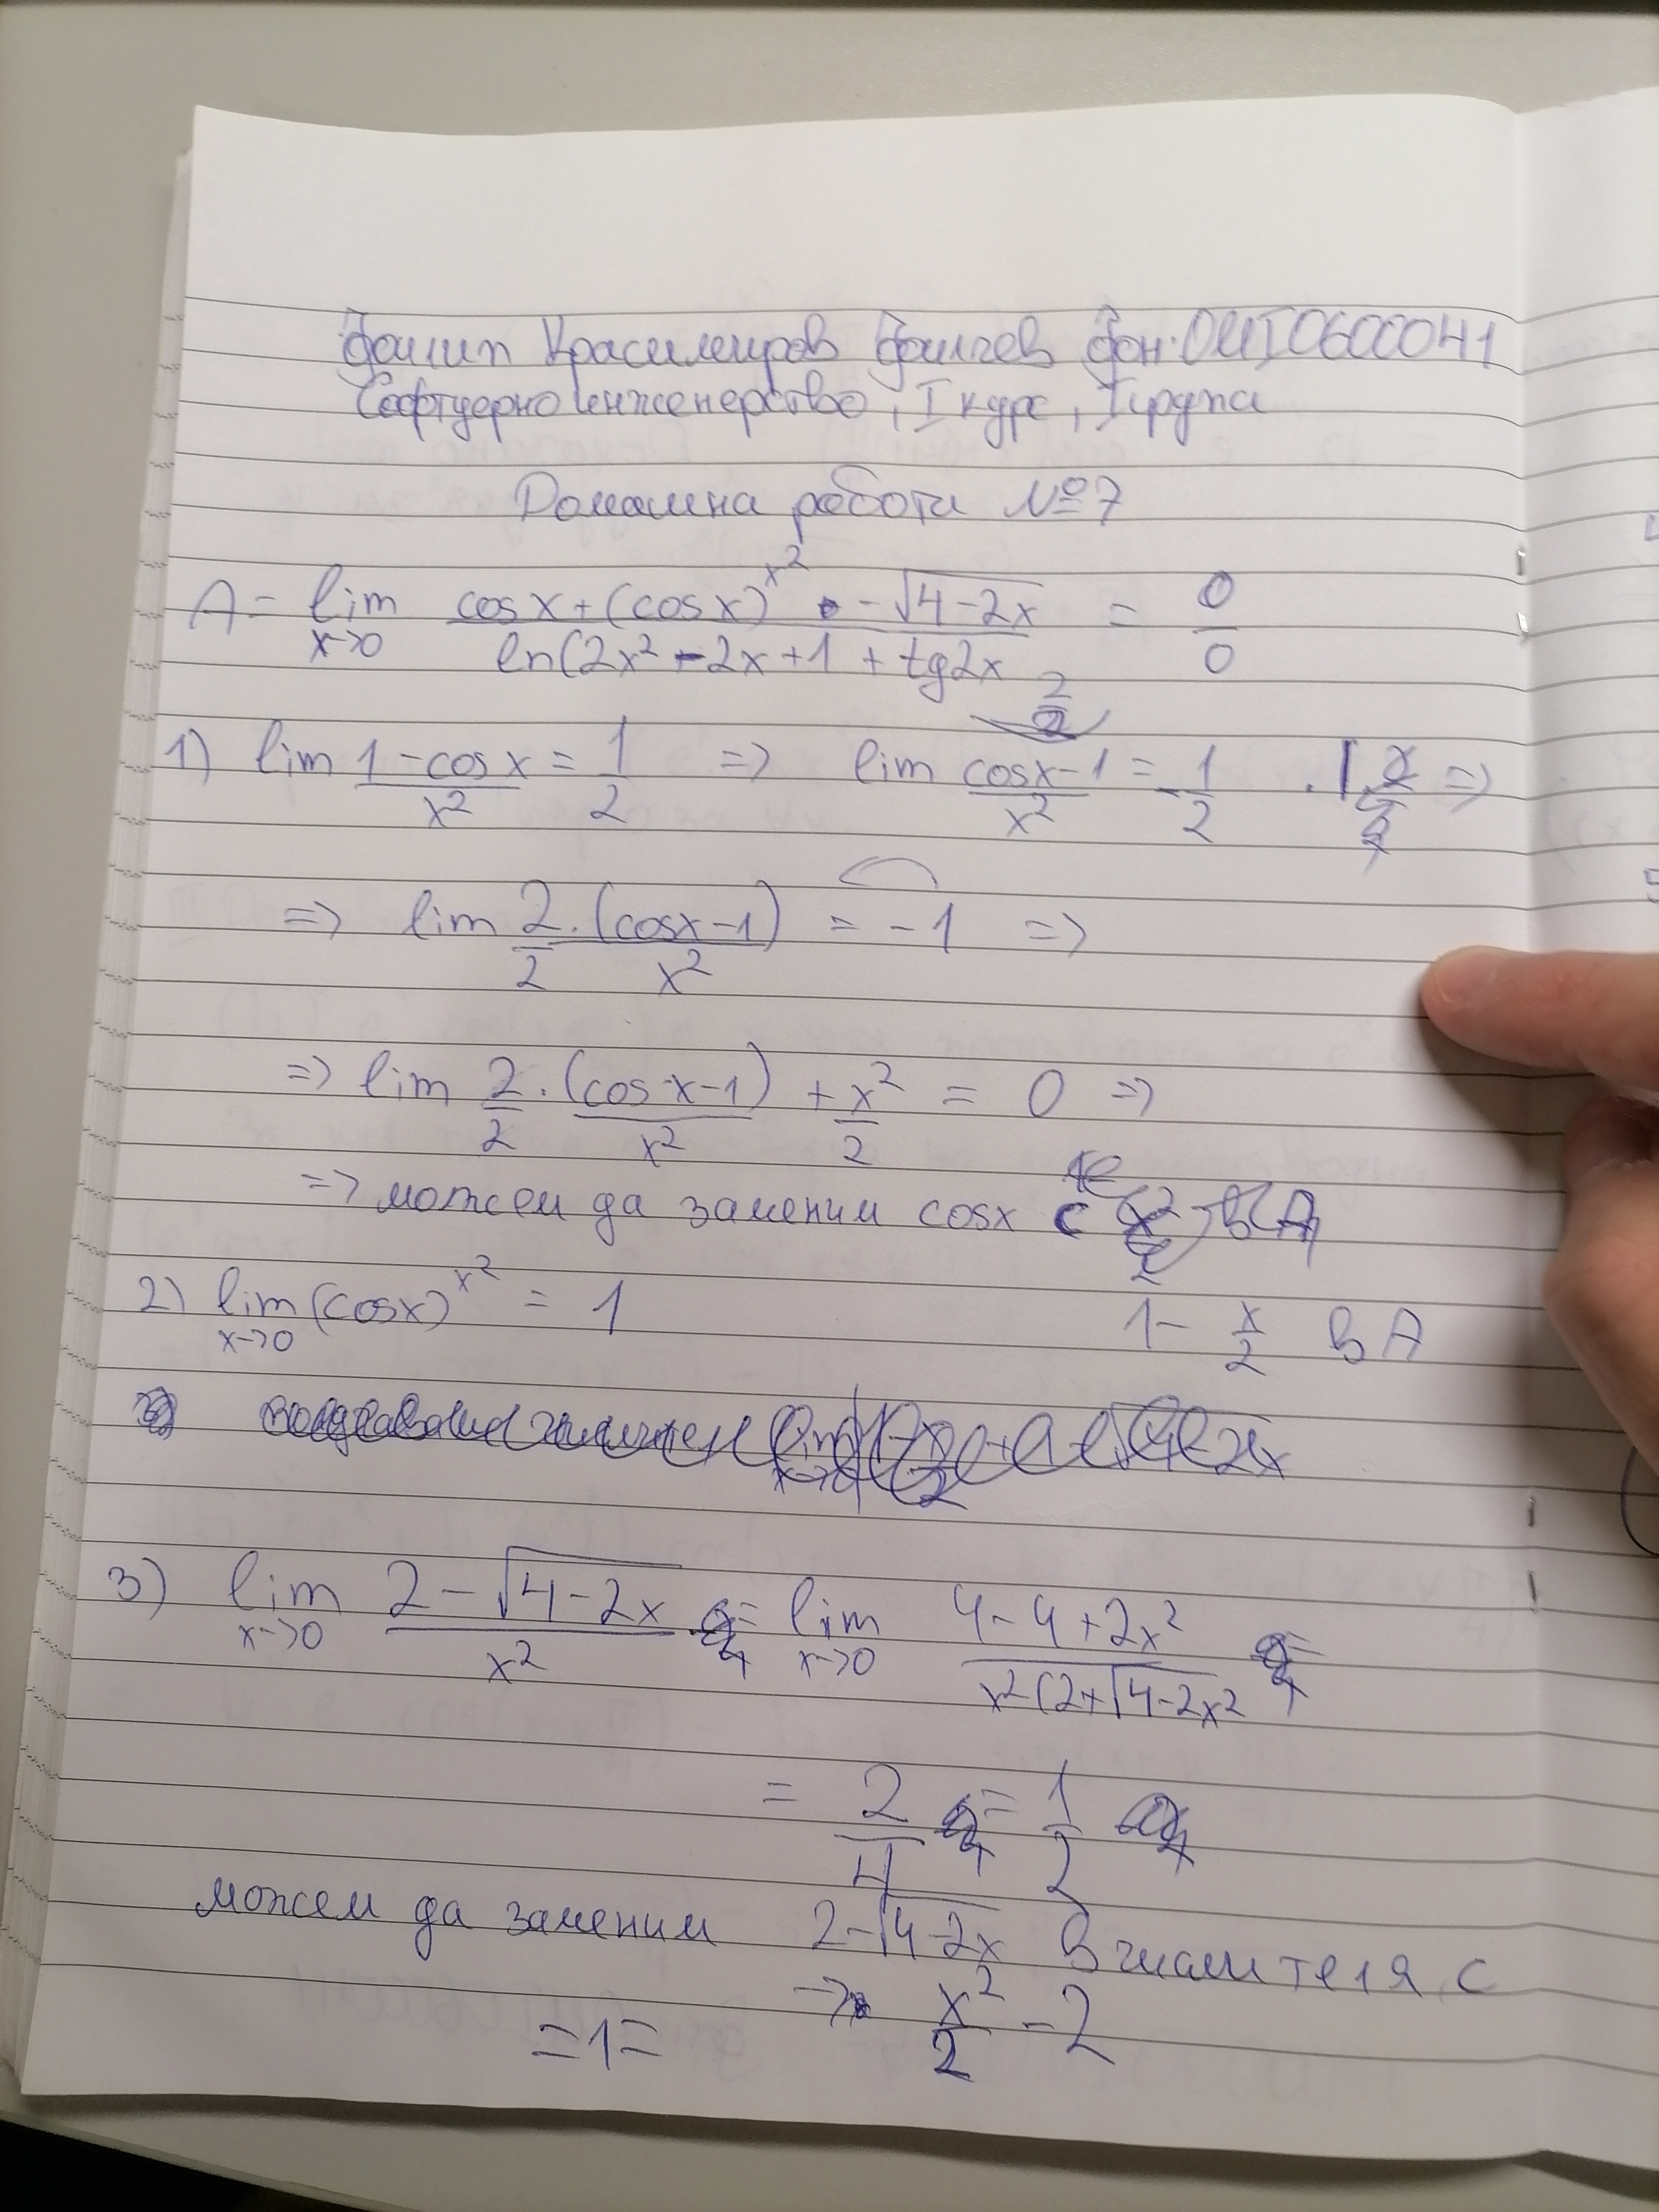 Филип Красимиров Филчев Фон: 0МI0600041
Софтуерно инженерство, I курс, I група
Домашна работа №7
A = lim x→0 (cosx + (cosx)^x² - √4-2x) / (ln(2x² - 2x + 1 + tg2x) = 0/0
1) lim (1-cosx)/x² = 1/2 => lim (cosx-1)/x² = -1/2 =>
=> lim 2/2 . (cosx-1)/x² = -1 =>
=> lim 2/2 . (cosx-1)/x² + x²/2 = 0 =>
=> можем да заменим cosx с
1 - x/2 в A
2) lim x→0 (cosx)^x² = 1
3) lim x→0 (2-√4-2x)/x² = lim x→0 (4-4+2x²)/(x²(2+√4-2x²)
= 2/4 = 1/2
можем да заменим 2-√4-2x в числителя с
→ x²/2 - 2
=1=